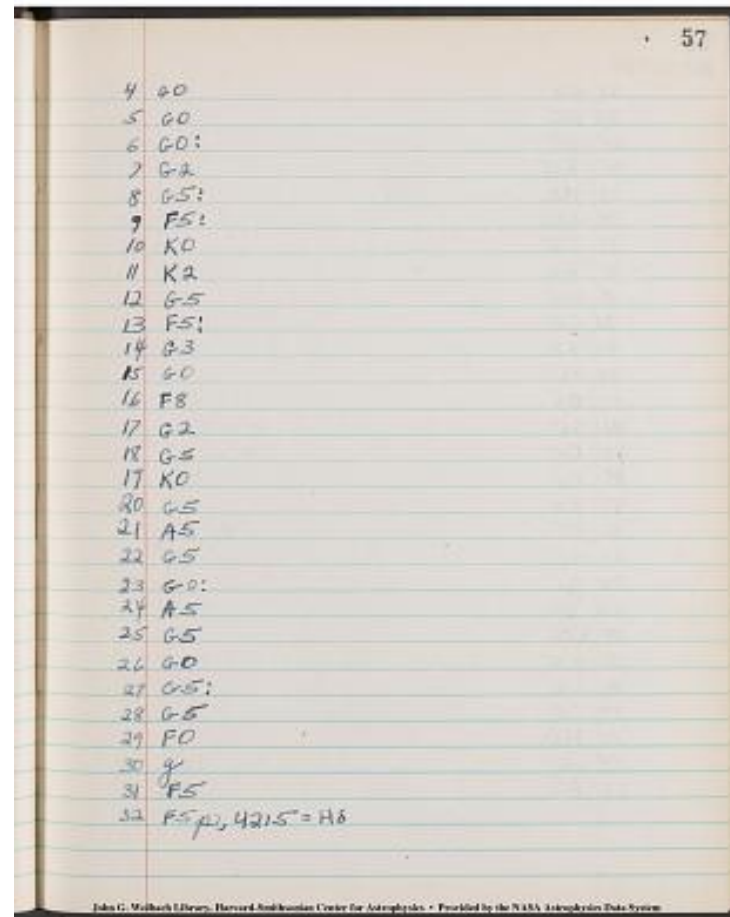 57
4 G0
5 G0
6 G0:
7 G2
8 G5:
9 F5:
10 K0
11 K2
12 G5
13 F5:
14 G3
15 G0
16 F8
17 G2
18 G5
19 K0
20 G5
21 A5
22 G5
23 G0:
24 A5
25 G5
26 G0
27 G5:
28 G5
29 F0
30 g
31 F5
32 F5 4215 = Hδ
John G. Wolbach Library, Harvard-Smithsonian Center for Astrophysics • Provided by the NASA Astrophysics Data System